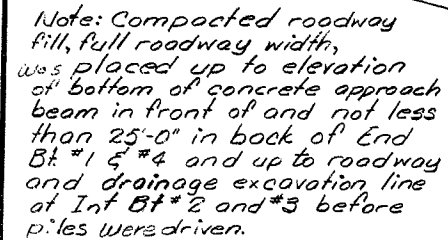 Note: Compacted roadway
fill, full roadway width,
was placed up to elevation
of bottom of concrete approach
beam in front of and not less
than 25'-0" in back of End
Bt #1 & #4 and up to roadway
and drainage excavation line
at Int Bt #2 and #3 before
piles were driven.